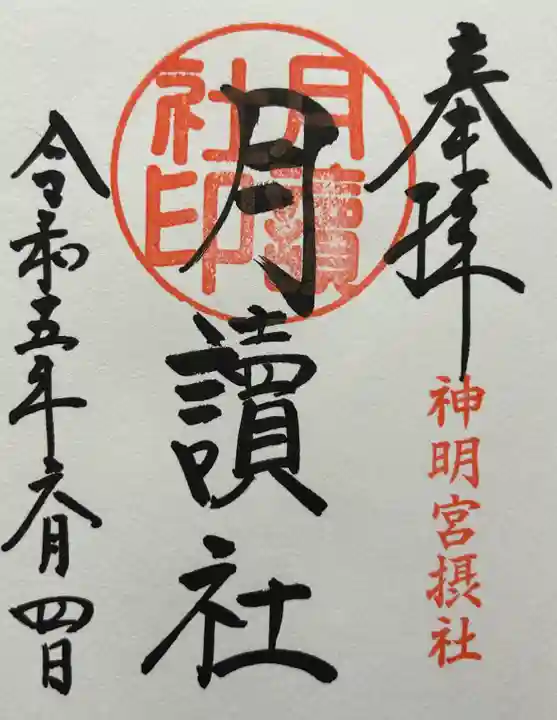 奉拝
神明宮摂社
月讀社印
月讀社
令和五年六月四日